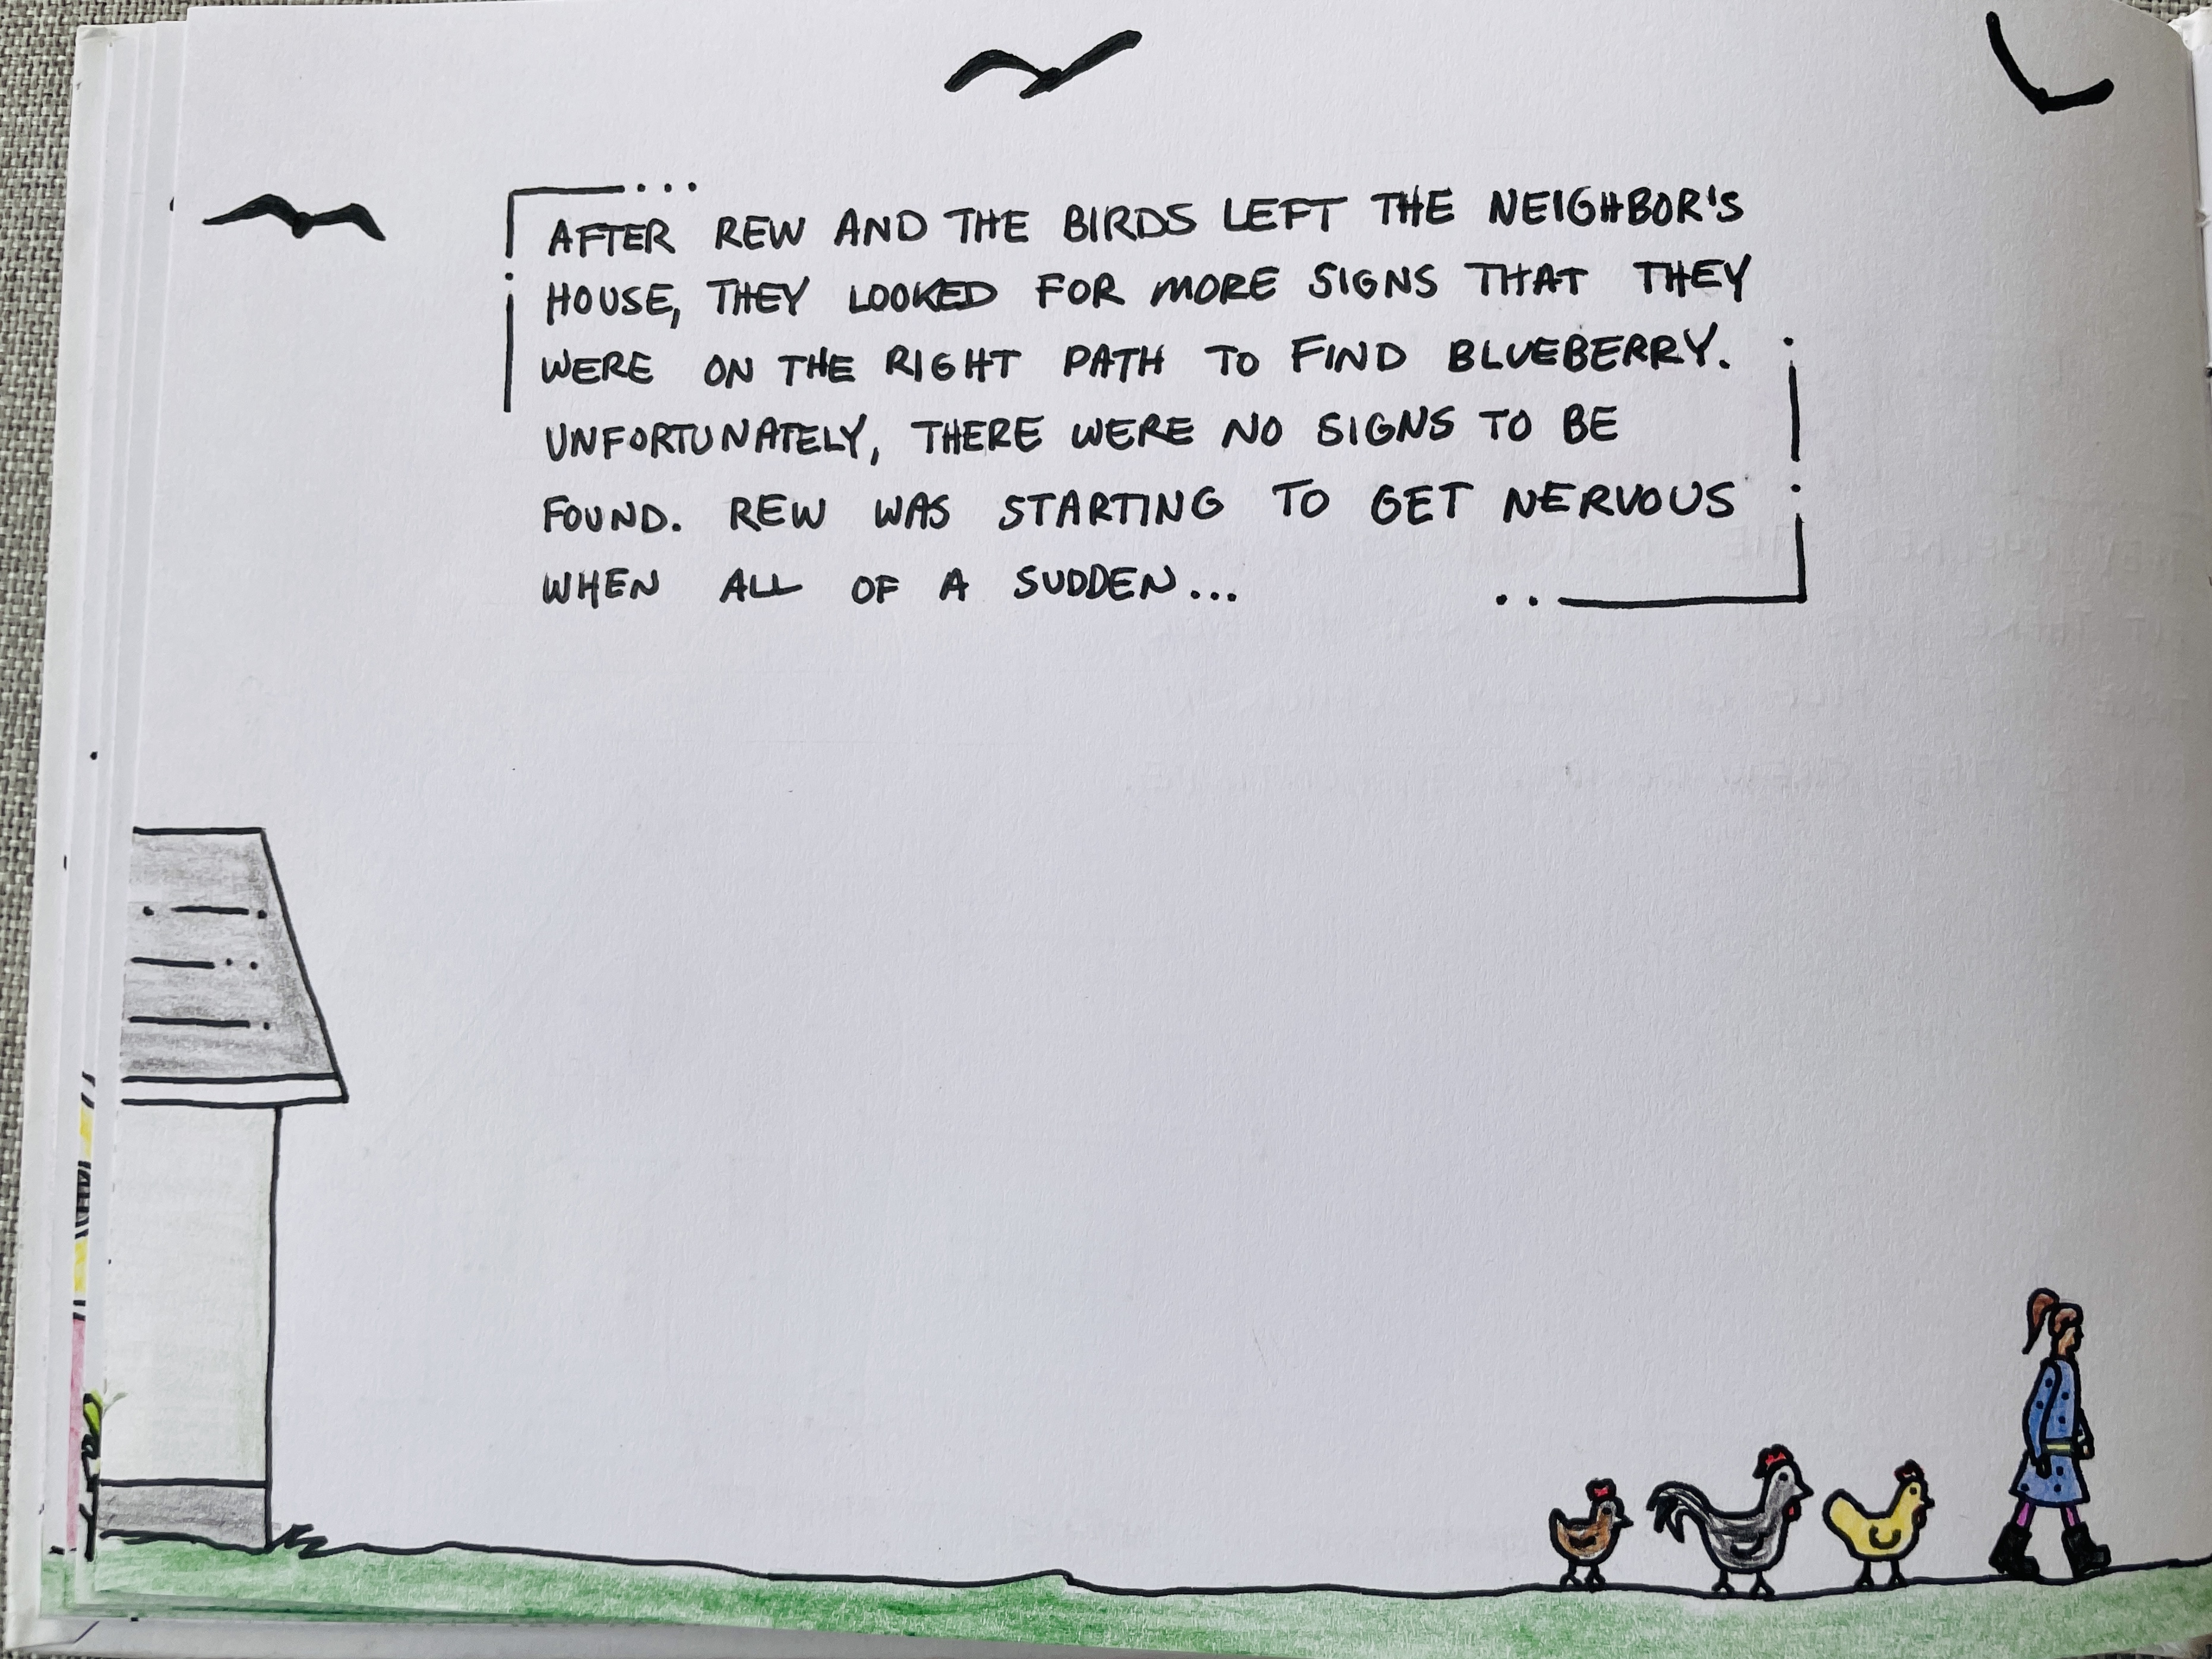 AFTER REW AND THE BIRDS LEFT THE NEIGHBOR'S
HOUSE, THEY LOOKED FOR MORE SIGNS THAT THEY
WERE ON THE RIGHT PATH TO FIND BLUEBERRY.
UNFORTUNATELY, THERE WERE NO SIGNS TO BE
FOUND. REW WAS STARTING TO GET NERVOUS
WHEN ALL OF A SUDDEN...